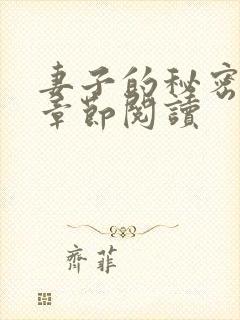 妻子的秘密
章節閱讀
齊菲